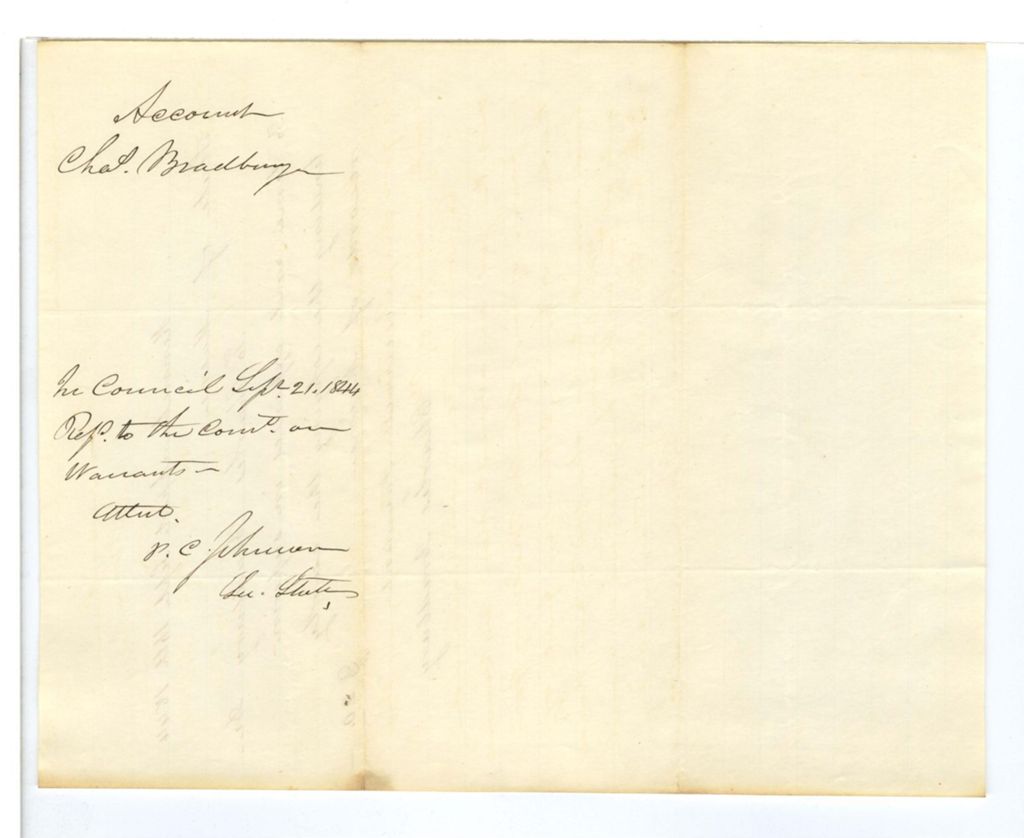 Account
Chas. Bradbury
In Council Sept. 21. 1844
Refd. to the Comt. on
Warrants —
Attest.
P. C. Johnson
Sec. State